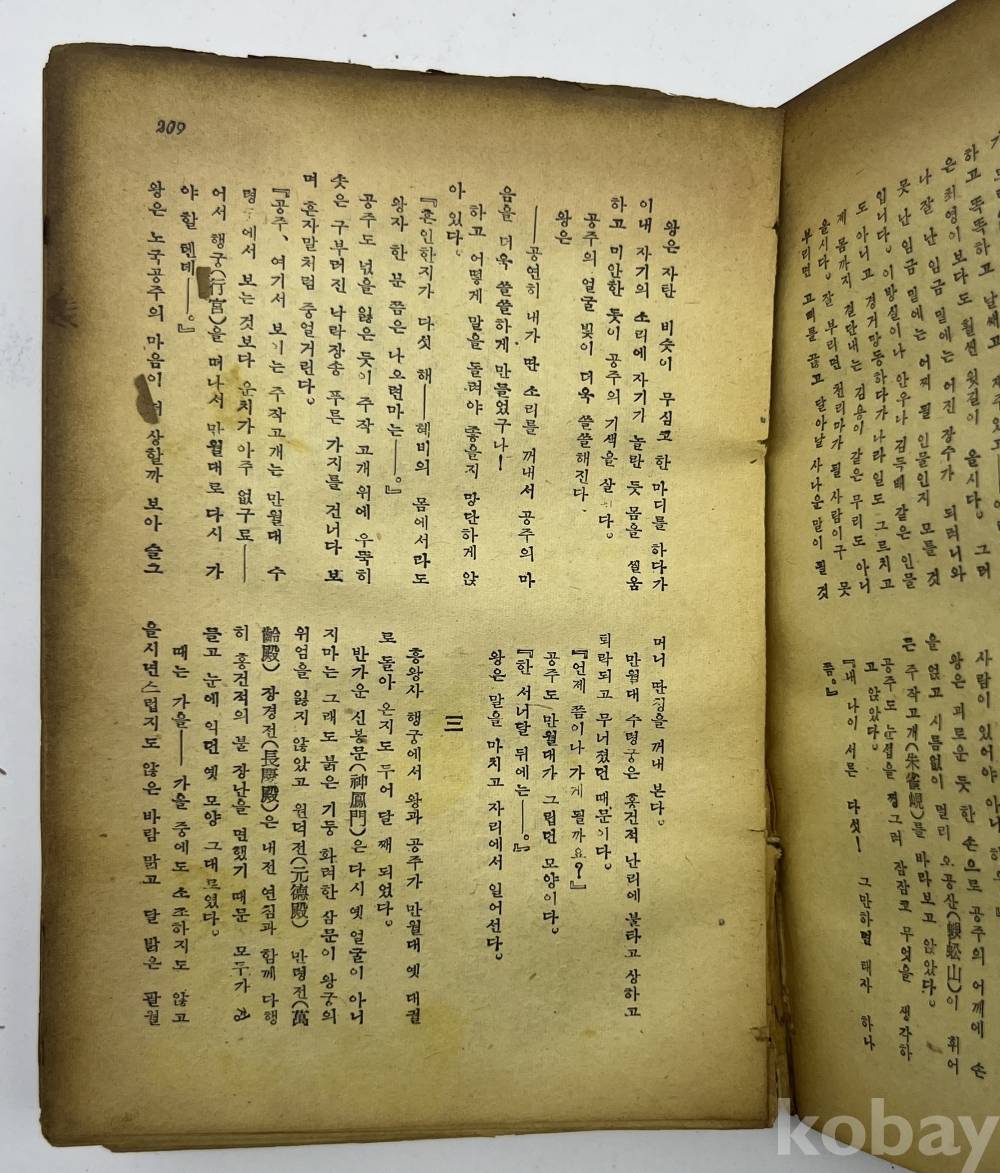 하고 똑똑하고 날쌔고 재주있고——
은 최영이보다도 훨씬 윗길이 을시다. 그러
나 잘난 임금 밑에는 어진 장수가 되려니와
못난 임금 밑에는 어찌 될 인물인지 모를 것
입니다。 이방실이나 안우나 김득배 같은 인물
도 아니고 경거망동하다가 나라일도 그르치고
제 몸까지 결단내는 김용이 같은 무리도 아니
을시다。 잘 부리면 천리마가 될 사람이구 못
부리면 고삐를 끊고 달아날 사나운 말이 될 것
사람이 있어야 아니
왕은 괴로운 듯 한 손으로 공주의 어깨에 손
을 얹고 시름없이 멀리 오공산(蜈蚣山)이 휘어
든 주작고개(朱雀峴)를 바라보고 앉았다。
공주도 눈썹을 찡그려 잠잠코 무엇을 생각하
고 앉았다。
『내 나이 서른 다섯! 그만하면 태자 하나
쯤。』
209
왕은 자탄 비슷이 무심코 한 마디를 하다가
이내 자기의 소리에 자기가 놀란 듯 몸을 씰움
하고 미안한 듯이 공주의 기색을 살핀다。
공주의 얼굴 빛이 더욱 쓸쓸해진다
왕은
——공연히 내가 딴 소리를 꺼내서 공주의 마
음을 더욱 쓸쓸하게 만들었구나!
하고 어떻게 말을 돌려야 좋을지 망단하게 앉
아 있다。
『혼인한지가 다섯 해——혜비의 몸에서라도
왕자 한 분 쯤은 나오련마는——。』
공주도 넋을 잃은 듯이 주작고개 위에 우뚝히
솟은 구부러진 낙락장송 푸른 가지를 건너다 보
며 혼자말처럼 중얼거린다。
『공주、 여기서 보이는 주작고개는 만월대 수
령궁에서 보는 것보다 운치가 아주 없구료——
어서 행궁(行宮)을 떠나서 만월대로 다시 가
야 할 텐데——。』
왕은 노국공주의 마음이 더 상할까 보아 슬그
머니 딴청을 꺼내 본다。
만월대 수령궁은 홍건적 난리에 불타고 상하고
퇴락되고 무너졌던 때문이다。
『언제 쯤이나 가게 될까요?』
공주도 만월대가 그립던 모양이다。
『한 서너달 뒤에는——。』
왕은 말을 마치고 자리에서 일어선다。
三
흥왕사 행궁에서 왕과 공주가 만월대 옛 대궐
로 돌아 온지도 두어 달 째 되었다。
반가운 신봉문(神鳳門)은 다시 옛 얼굴이 아니
지마는 그래도 붉은 기둥 화려한 삼문이 왕궁의
위엄을 잃지 않았고 원덕전(元德殿) 만령전(萬
齡殿) 장경전(長慶殿)은 내전 연침과 함께 다행
히 홍건적의 불 장난을 면했기 때문 모두가 눈
들고 눈에 익던 옛 모양 그대로였다。
때는 가을——가을 중에도 소조하지도 않고
을시년스럽지도 않은 바람 맑고 달 밝은 팔월
kobay